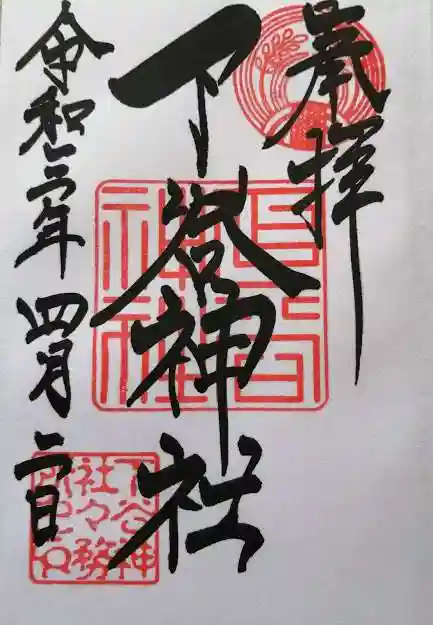 奉拝
下谷神社
令和三年
四月
二日
下谷
神社
下谷神
社々務
所之印